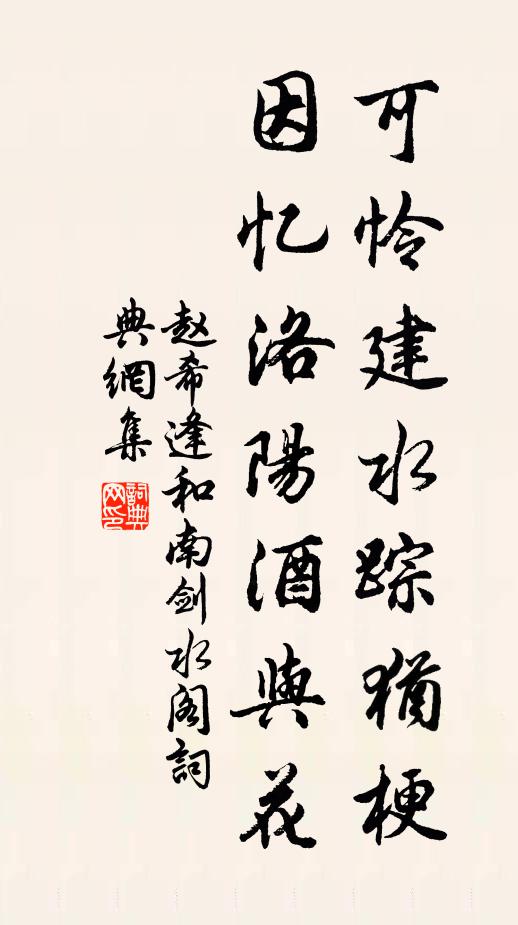 可怜建水踪犹梗
因忆洛陽酒與花
赵希逢和南剑水阁詞
典網集
詞典网印